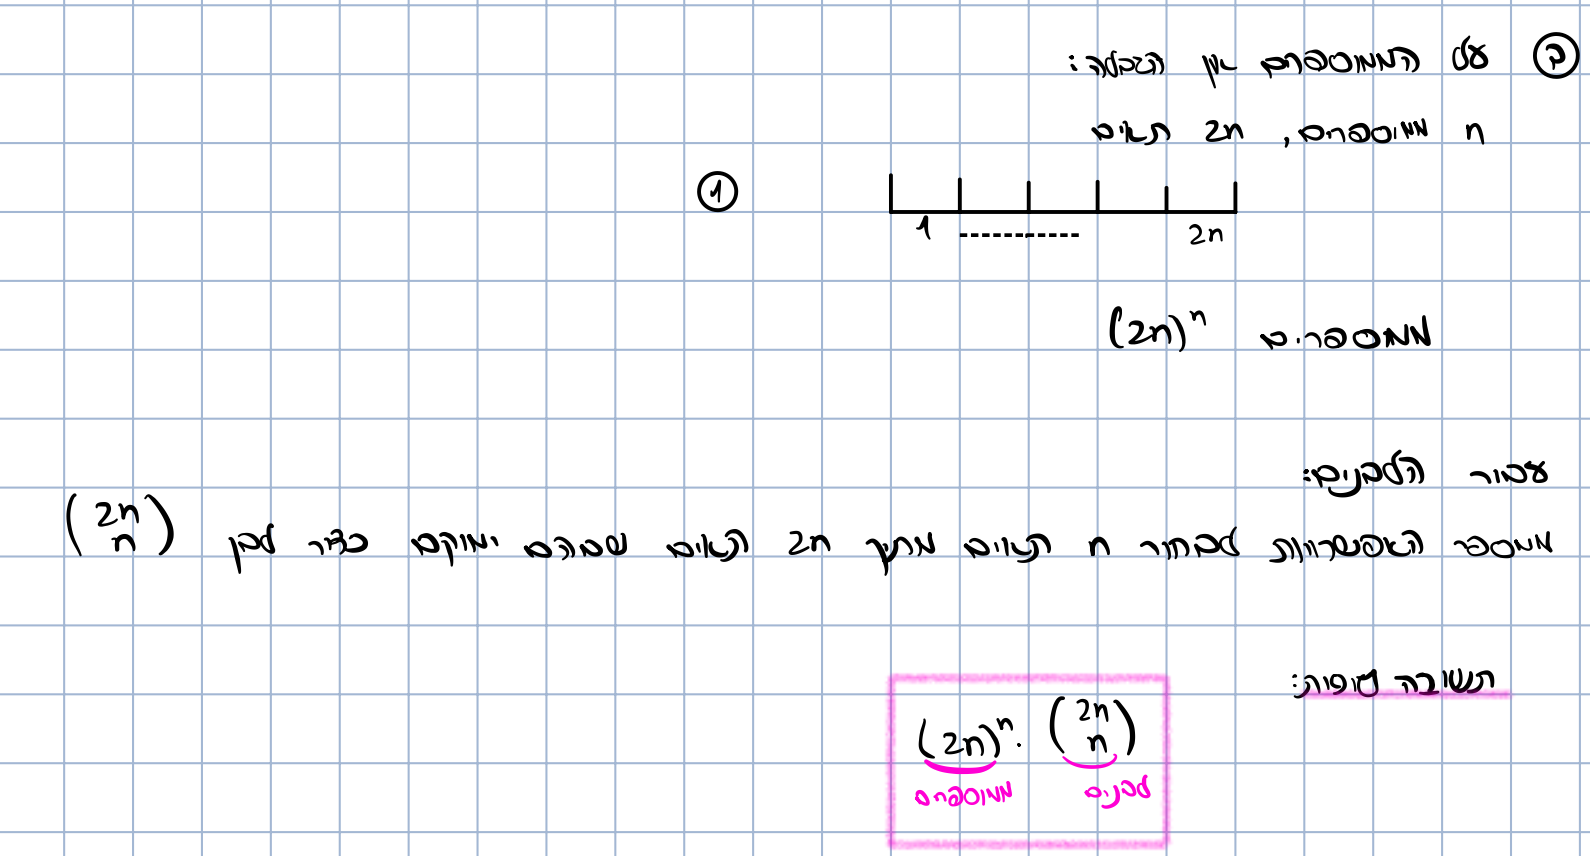 ב על הממוספרים אין הגבלה:
n ממוספרים, 2n תאים
1
1 ----------- 2n
ממוספרים (2n)^n
עבור הלבנים:
מספר האפשרויות לבחור n תאים מתוך 2n תאים שבהם ימוקם כדור לבן (2n n)
תשובה סופית:
(2n)^n · (2n n)
ממוספרים לבנים